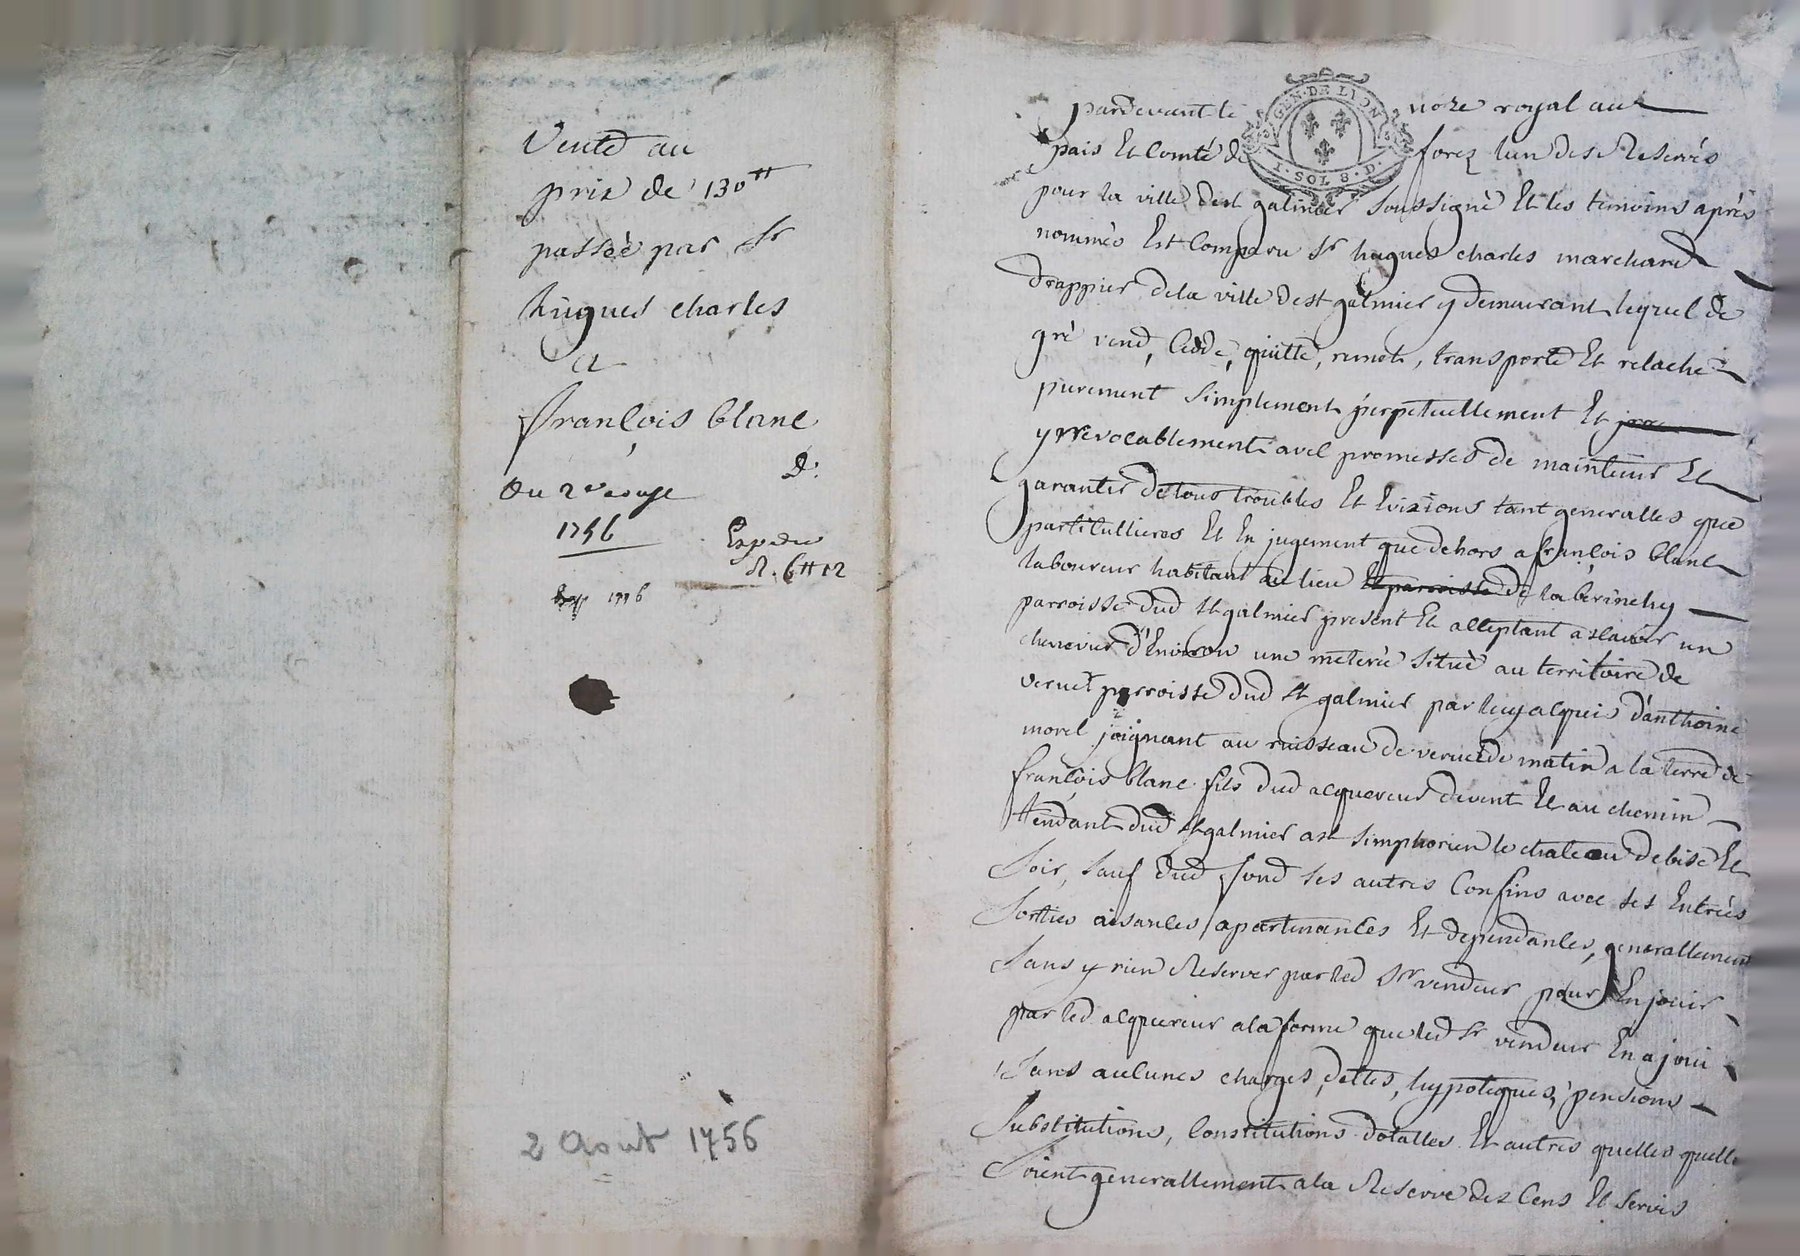 Vente au
prix de 130tt
passèe par Sr
hugues charles
a
françois blanc
D:
Du 2e aoust
1756
Expedie
R. 6tt 12
1756
2 Aout 1756
GEN·DE LYON
1·SOL 8·D·
pardevant le nore royal au
païs Et Comté de forez lun des Reservés
pour la ville de st galmier soussigné Et les temoins après
nommés Est Comparu Sr hugues charles marchand
drappier dela ville de st galmier y demeurant lequel de
gré vend, Cedde, quitte, remet, transporte Et relache
purement simplement perpetuellement Et
yrrevocablement avec promesses de maintenir Et
garantir de tous troubles Et Evizions tant generalles que
particullieres Et En jugement que dehors a françois blanc
laboureur habitant au lieu Et parroisse de la berinchy
parroisse dud st galmier present Et acceptant ascavoir un
chenevier d'Environ une meterée situé au territoire de
veruet parroisse dud st galmier par luy acquis d'anthoine
morel joignant au ruisseau de veruet de matin a la terre de
françois blanc fils dud acquereur de vent Et au chemin
tendant dud st galmier a st simphorien le chateau de bise Et
soir, sauf dud fond ses autres Confins avec ses Entrées
sorties aisances, apartenances Et dependances, generallement
sans y rien Reserver par led Sr vendeur pour En jouir
par led acquereur a la forme que led Sr vendeur En a joui
sans aucunes charges, dettes, hypoteques, pensions
substitutions, Constitutions dotalles Et autres quelles quelle
soient generallement a la Reserve des Cens Et servis